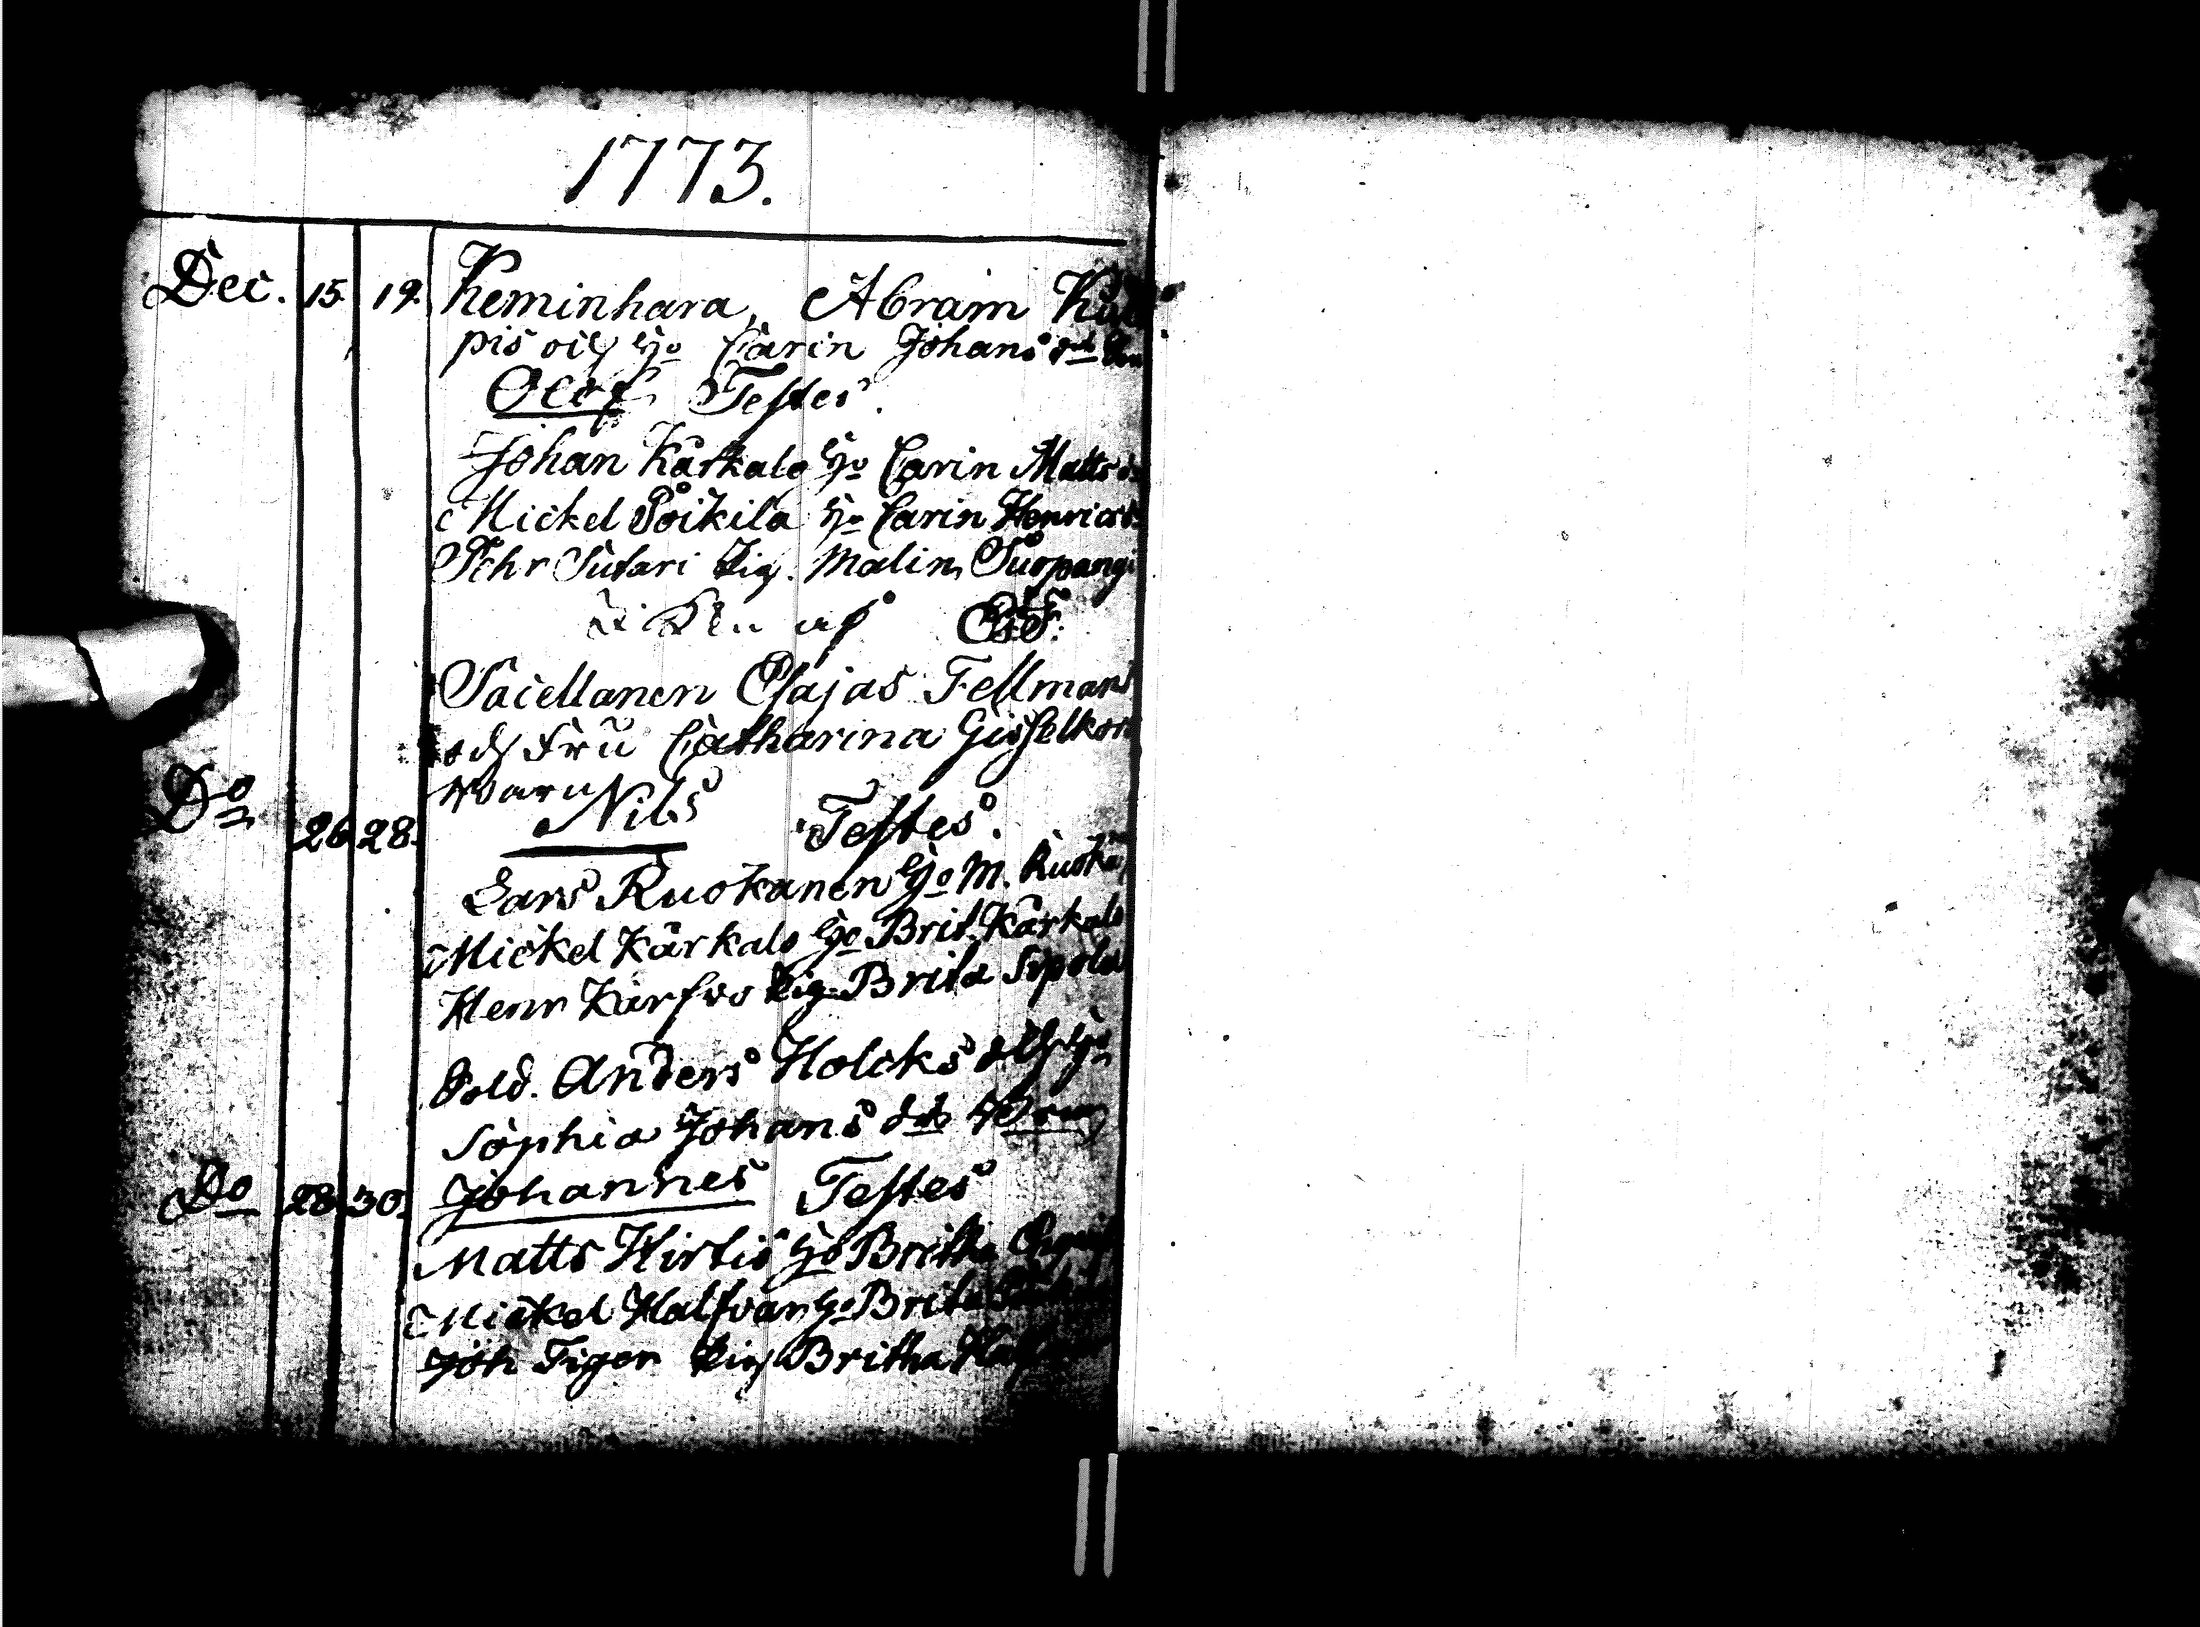 1773.
Dec. 15. 19. Keminhara, Abram
pis och h:o Carin Johans d:r
Olof Testes.
Johan Kärkalo h:o Carin Matts
Mickel Poikila h:o Carin Henrics
Pehr Sutari Pig. Malin Suopangi
af E:F:
Sacellanen Esajas Fellman
och Fru Catharina Gisselkors
Barn
Do 26 28. Nils Testes.
Lars Ruokanen h:o M. Ruoka
Mickel Kärkalo h:o Brit. Kärkalo
Henr Kärsvo Pig. Brita Sipola
Sold. Anders Holcks och h:o
Sophia Johans d:r Barn
Do 28. 30. Johannes Testes
Matts Hirsis h:o Britha
Mickel Halfvar h:o Brita
Joh Tiger Pig Britha